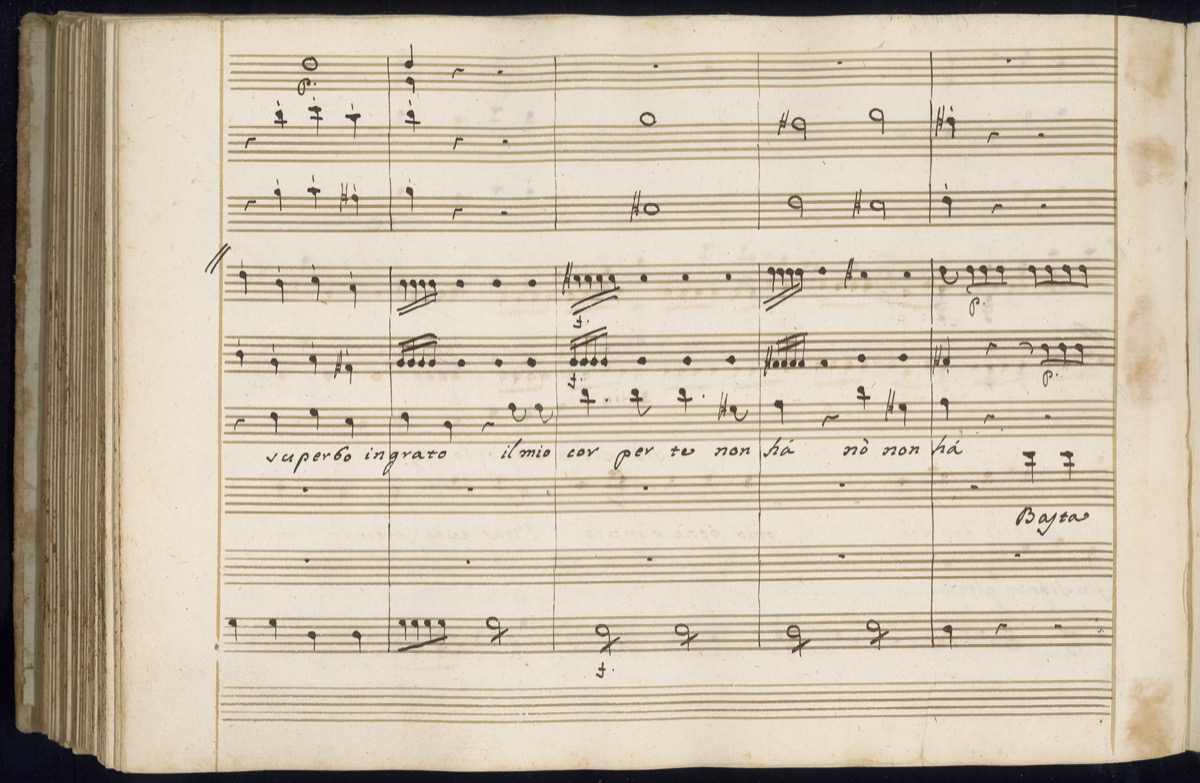 p.
f.
p.
f.
p.
superbo ingrato il mio cor per te non há nò non há
Basta
f.